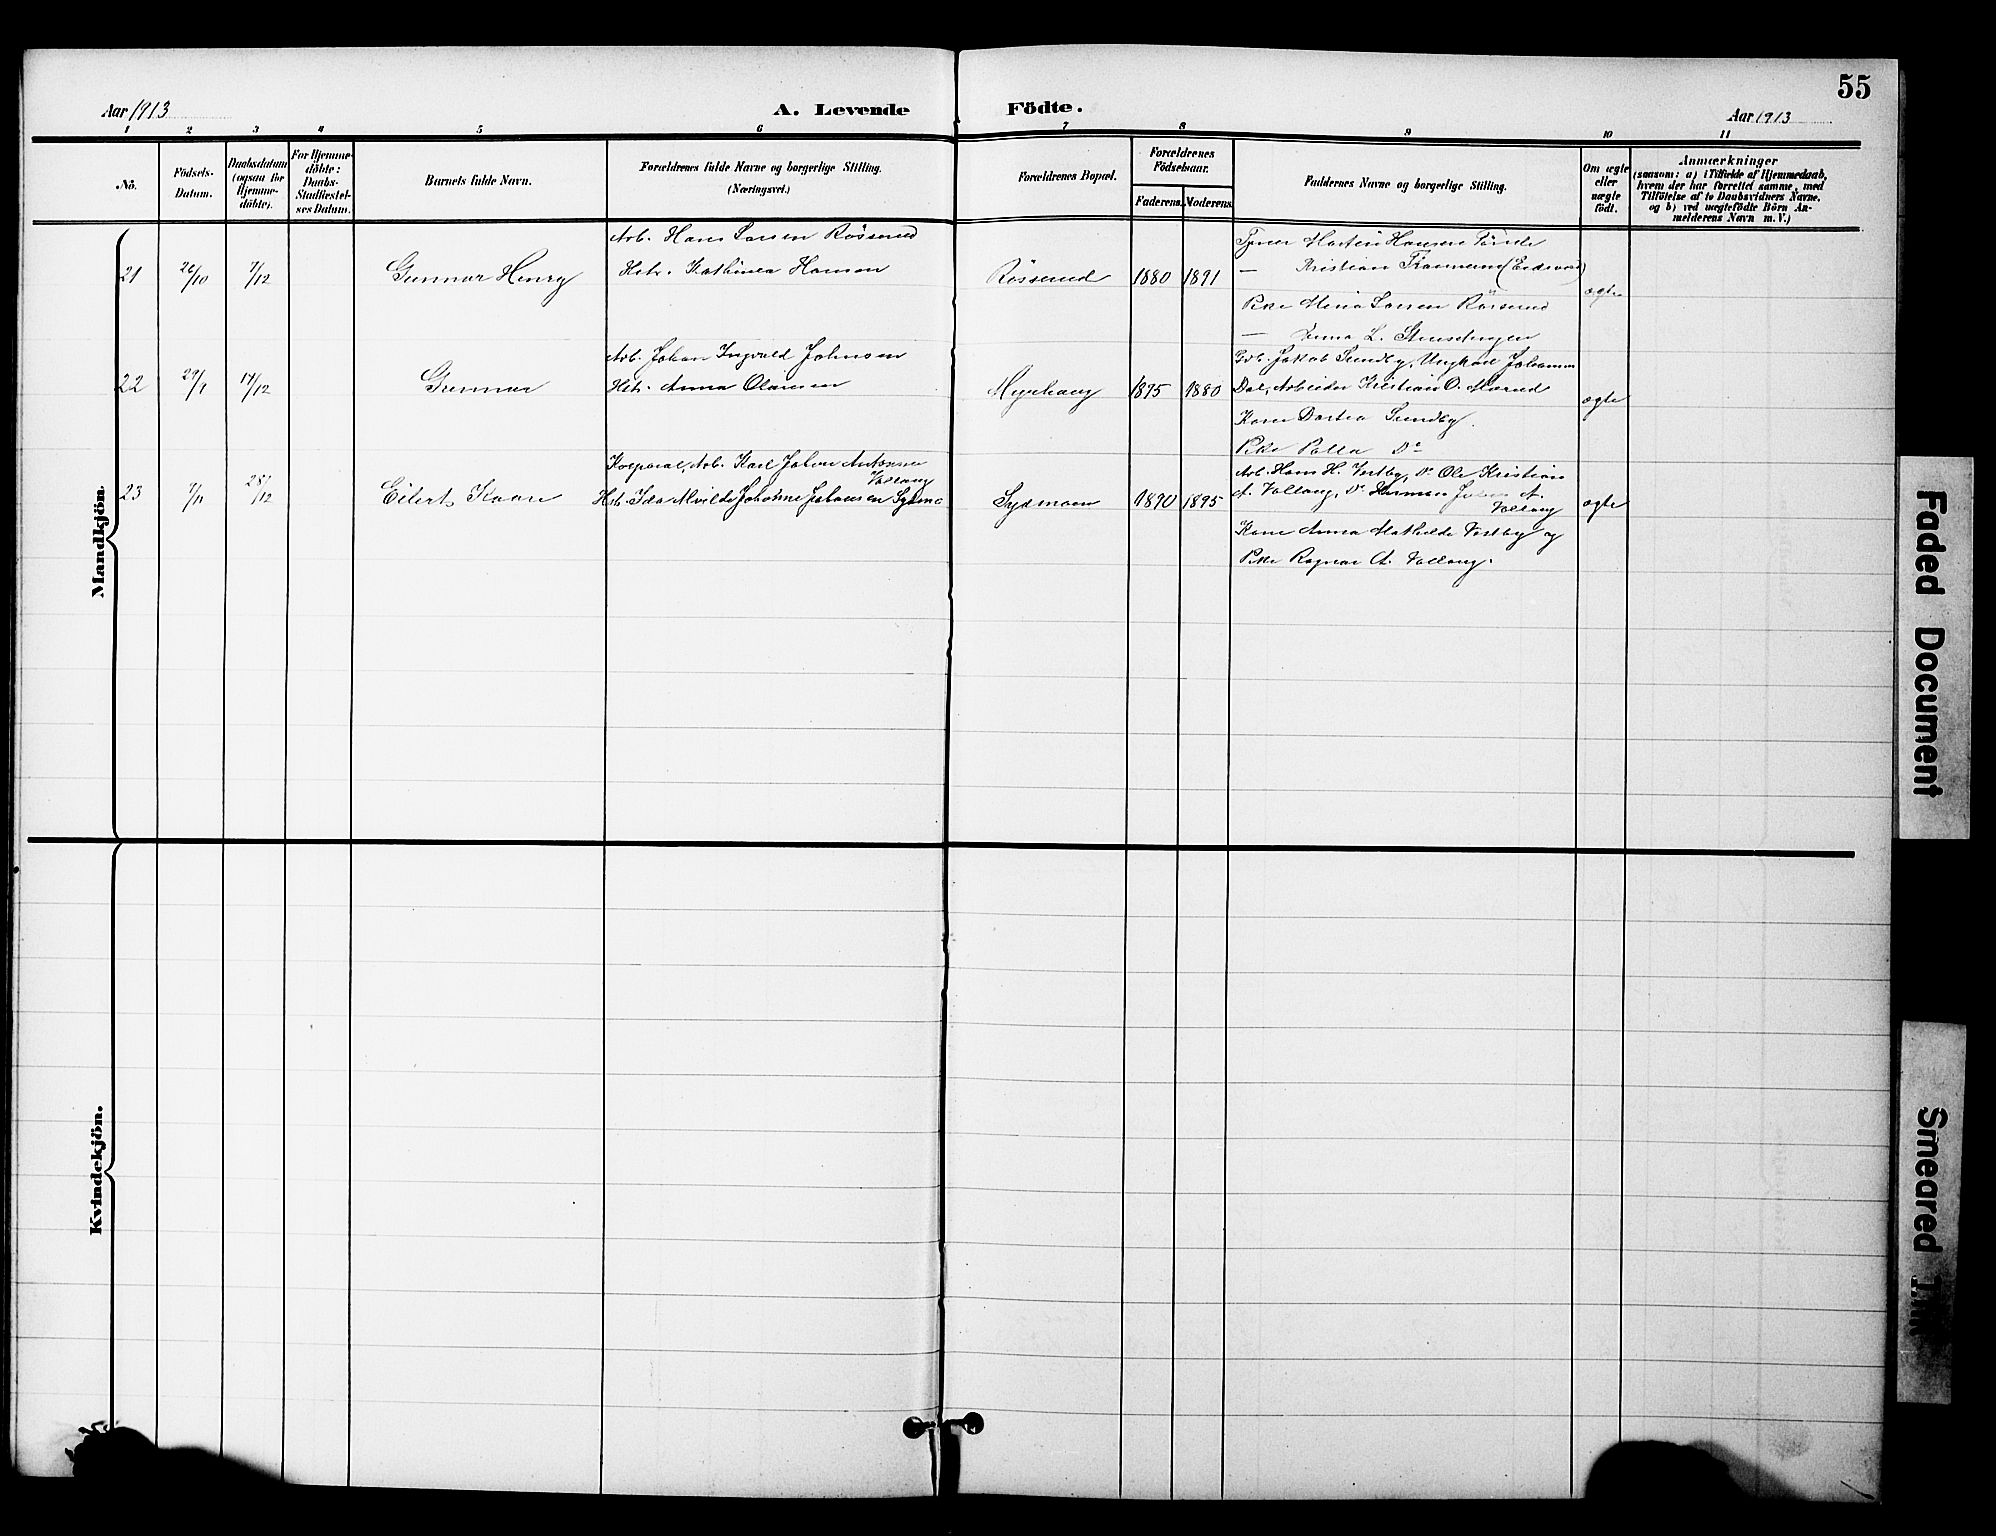 55
Aar 1913
A. Levende Födte.
Aar 1913
1 2 3 4 5 6 7 8 9 10 11
No.
Födsels-Datum.
Daabsdatum (ogsaa for Hjemme-döbte).
For Hjemme-döbte: Daabs-Stadfæstel-ses Datum.
Barnets fulde Navn.
Forældrenes fulde Navne og borgerlige Stilling. (Næringsvei.)
Forældrenes Bopæl.
Forældrenes Födselsaar.
Faderens. Moderens.
Faddernes Navne og borgerlige Stilling.
Om ægte eller uægte födt.
Anmærkninger
(saasom: a) i Tilfælde af Hjemmedaab, hvem der har forrettet samme, med Tilföielse af to Daabsvidners Navne, og b) ved uægtefödte Börn An-melderens Navn m. V.)
Mandkjön.
21 26/10 7/12 Gunnar Henry
Arb. Hans Larsen Røsserud
Hstr. Kathinca Hansen
Røsserud 1880 1891
Martin Hansen
— Kristian
Pike Mina Larsen Rösserud
— L.
ægte
22 14/12 Gunnar
Arb. Johan Ingvald Johnsen
Hstr. Anna Olausen
Myrhaug 1895 1880
Jakob Sundby, Ungkarl Johannes
Dal, Arbeider Kristian O.
Kone Dortea Sundby.
Pike Palla Do
ægte
23 28/12 Eilert Kaare
Korporal, Arb. Karl Johan Antonsen
Vollaug
Hstr. Ida Alvilde Johanne Johansen
1890 1895
Arb. Hans H. Vestby, Do Ole Kristian
A. Vollaug, Do Herman Johan A.
Vollaug
Kone Anna Mathilde Vestby og
Pike Ragna A. Vollaug.
ægte
Kvindekjön.
Faded Document
Smeared Ink